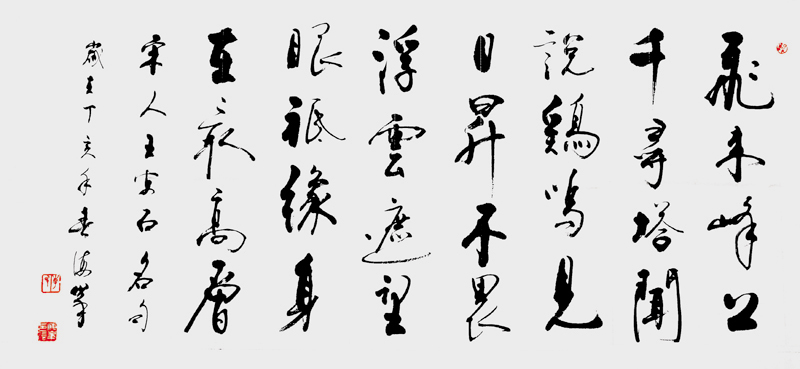 飛来峰上
千尋塔聞
說鷄鳴見
日昇不畏
浮雲遮望
眼祇緣身
在最高層
宋人王安石名句
歲在丁亥年春海肇